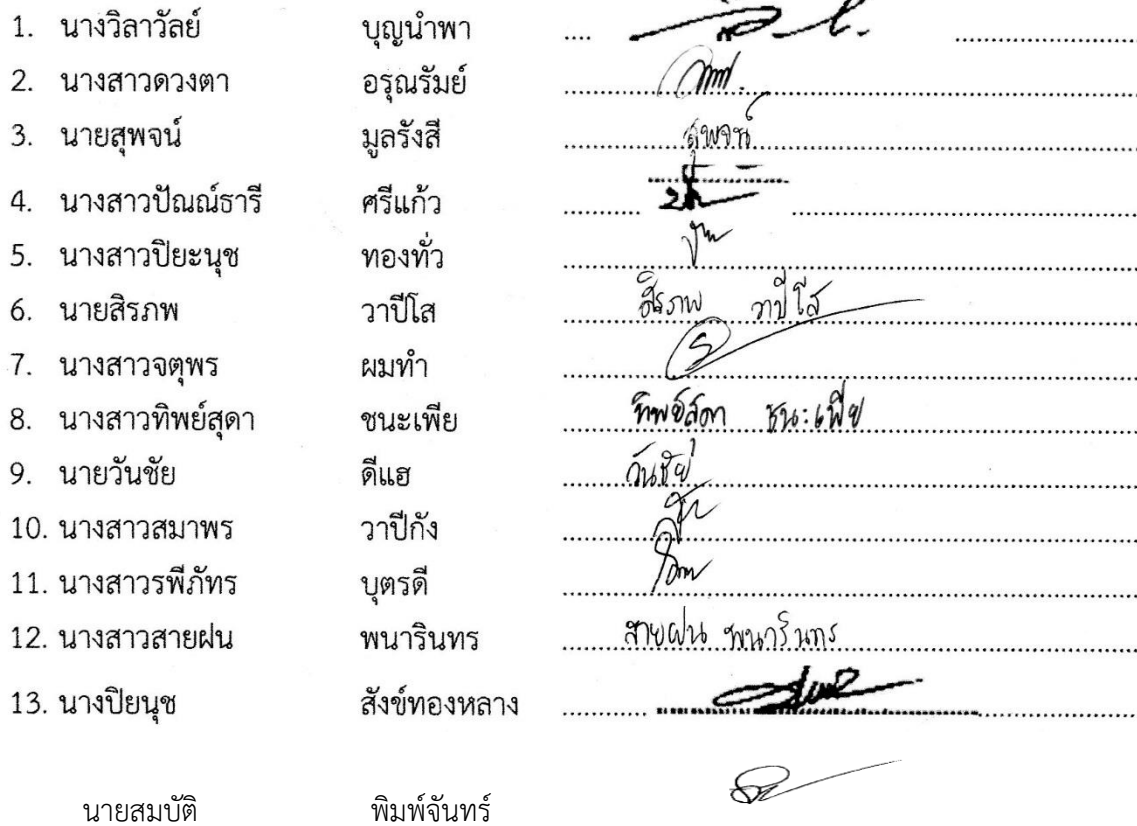 1. นางวิลาวัลย์ บุญนำพา
2. นางสาวดวงตา อรุณรัมย์
3. นายสุพจน์ มูลรังสี สุพจน์
4. นางสาวปัณณ์ธารี ศรีแก้ว
5. นางสาวปิยะนุช ทองทั่ว
6. นายสิรภพ วาปีโส สิรภพ วาปีโส
7. นางสาวจตุพร ผมทำ
8. นางสาวทิพย์สุดา ชนะเพีย ทิพย์สุดา ชนะเพีย
9. นายวันชัย ดีแฮ วันชัย
10. นางสาวสมาพร วาปีกัง
11. นางสาวรพีภัทร บุตรดี
12. นางสาวสายฝน พนารินทร สายฝน พนารินทร
13. นางปิยนุช สังข์ทองหลาง
นายสมบัติ พิมพ์จันทร์